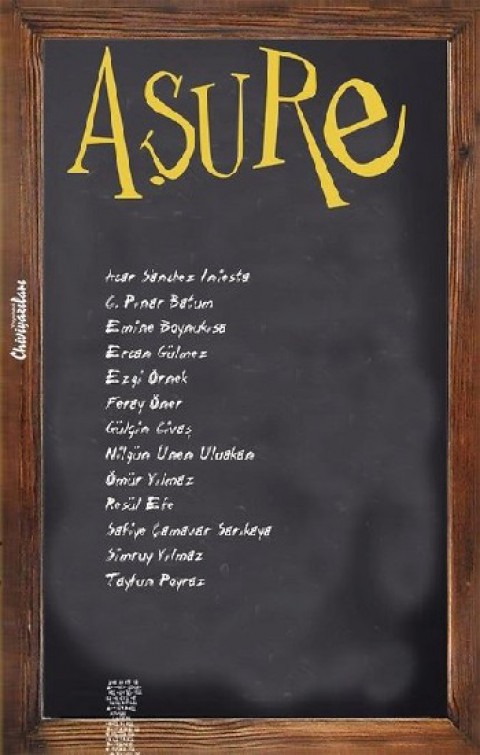 AŞURe
Acar Sánchez Iniesta
G. Pınar Batum
Emine Boynukısa
Ercan Gülmez
Ezgi Örnek
Feray Öner
Gülçin Civaş
Nilgün Ünen Uluakan
Ömür Yılmaz
Resül Efe
Safiye Çamavar Sarıkaya
Simruy Yılmaz
Taytun Poyraz
Chiviyazıları